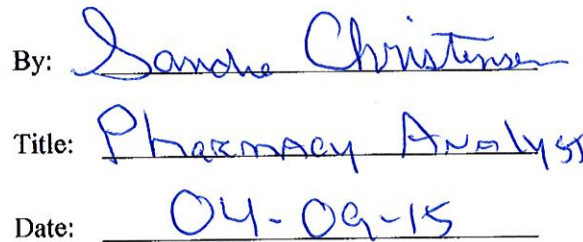 By: Sandra Christensen
Title: Pharmacy Analyst
Date: 04-09-15